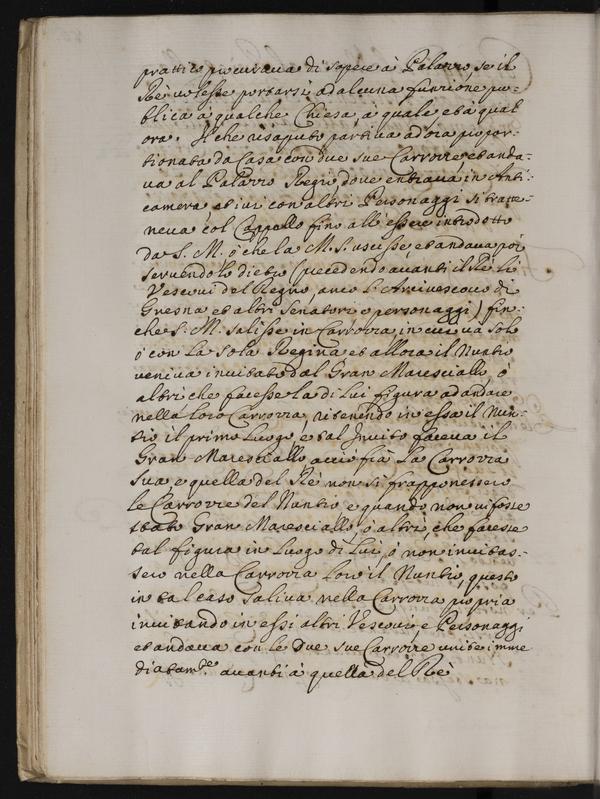 prattico procuraua di sapere à Palazzo, se il
Rè uolesse portarsi ad alcuna funzione pu-
blica a qualche Chiesa, à quale et à qual
ora. Il che risaputo partiua ad ora propor-
tionata da Casa con due sue Carrozze, et anda-
ua al Palazzo Regio, doue entraua in Anti-
camera, et iui con altri Personaggi si tratte-
neua col Cappello fino all'essere introdotto
da S. M. ò che la M. S. uscisse, et andaua poi
seruendolo dietro (precedendo auanti il Rè li
Vescoui del Regno, anco l'Arciuescouo di
Gnesna et altri Senatori e personaggi) fin-
che S. M. salisse in Carrozza, in cui uà solo
ò con la sola Regina et allora il Nuntio
ueniua inuitato dal Gran Maresciallo, ò
altri che facesse la di lui figura ad andare
nella loro Carrozza, ritenendo in essa il Nun-
tio il primo luogo, e tal Inuito faceua il
Gran Maresciallo acciò frà la Carrozza
sua, e quella del Rè non si frapponessero
le Carrozze del Nuntio, e quando non ui fosse
stato Gran Maresciallo, ò altri, che facesse
tal figura in luogo di lui, ò non inuitas-
sero nella Carrozza loro il Nuntio, questo
in tal caso saliua nella Carrozza propria
inuitando in essi altri Vescoui, e Personaggi
et andaua con le due sue Carrozze unite imme
diatam.te auanti à quella del Rè